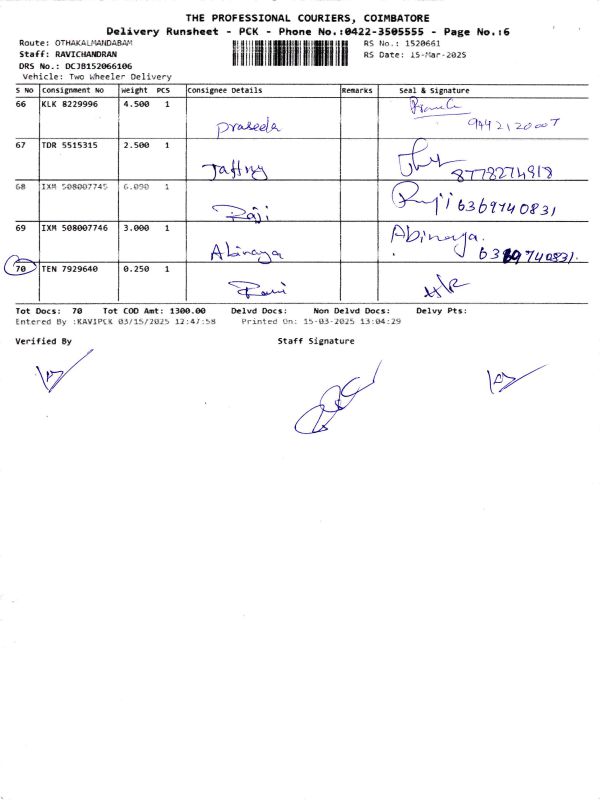 THE PROFESSIONAL COURIERS, COIMBATORE
Delivery Runsheet - PCK - Phone No.:0422-3505555 - Page No.:6
Route: OTHAKALMANDABAM RS No.: 1520661
Staff: RAVICHANDRAN RS Date: 15-Mar-2025
DRS No.: DCJB152066106
Vehicle: Two Wheeler Delivery
S No Consignment No Weight PCS Consignee Details Remarks Seal & Signature
66 KLK 8229996 4.500 1
praseeda 9442120007
67 TDR 5515315 2.500 1
8778274918
68 IXM 508007745 6.090 1
Raji Raji 6369740831
69 IXM 508007746 3.000 1 Abinaya.
Abinaya 6369740831.
70 TEN 7929640 0.250 1
Ravi
Tot Docs: 70 Tot COD Amt: 1300.00 Delvd Docs: Non Delvd Docs: Delvy Pts:
Entered By :KAVIPCK 03/15/2025 12:47:58 Printed On: 15-03-2025 13:04:29
Verified By Staff Signature